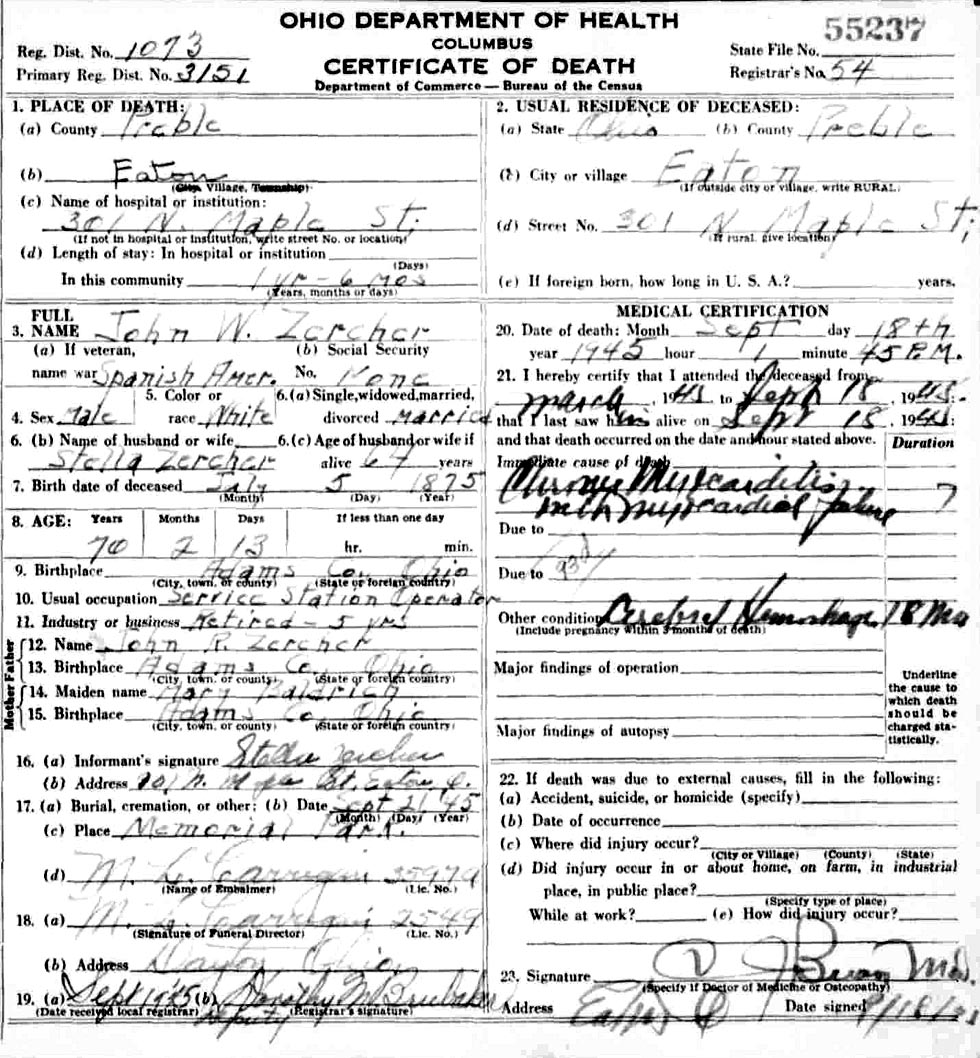 OHIO DEPARTMENT OF HEALTH
55237
COLUMBUS
Reg. Dist. No. 1073
State File No.
CERTIFICATE OF DEATH
Primary Reg. Dist. No. 3151
Registrar's No. 54
Department of Commerce — Bureau of the Census
1. PLACE OF DEATH:
(a) County Preble
(b) Eaton
(City, Village, Township)
(c) Name of hospital or institution:
301 N. Maple St;
(If not in hospital or institution, write street No. or location)
(d) Length of stay: In hospital or institution
(Days)
In this community 1 yr - 6 mos
(Years, months or days)
2. USUAL RESIDENCE OF DECEASED:
(a) State Ohio (b) County Preble
(b) City or village Eaton
(If outside city or village, write RURAL)
(d) Street No. 301 N. Maple St;
(If rural, give location)
(e) If foreign born, how long in U. S. A.? years.
3. FULL NAME John W. Zercher
(a) If veteran, name war Spanish Amer.
(b) Social Security No. None
4. Sex Male
5. Color or race White
6. (a) Single, widowed, married, divorced Married
6. (b) Name of husband or wife Stella Zercher
6. (c) Age of husband or wife if alive 64 years
7. Birth date of deceased July 5 1875
(Month) (Day) (Year)
8. AGE: Years Months Days If less than one day
70 2 13 hr. min.
9. Birthplace Adams Co, Ohio
(City, town, or county) (State or foreign country)
10. Usual occupation Service Station Operator
11. Industry or business Retired - 5 yrs
Father
12. Name John R. Zercher
13. Birthplace Adams Co, Ohio
(City, town, or county) (State or foreign country)
Mother
14. Maiden name Mary
15. Birthplace Adams Co, Ohio
(City, town, or county) (State or foreign country)
16. (a) Informant's signature Stella Zercher
(b) Address St. Eaton O.
17. (a) Burial, cremation, or other; (b) Date Sept 21 45
(Month) (Day) (Year)
(c) Place Memorial Park.
(d) M. L.
(Name of Embalmer) (Lic. No.)
18. (a) M. 2549
(Signature of Funeral Director) (Lic. No.)
(b) Address Dayton Ohio
19. (a) Sept (b) Dorothy M. Brubaker
(Date received local registrar) Deputy (Registrar's signature)
MEDICAL CERTIFICATION
20. Date of death: Month Sept day 18th
year 1945 hour 1 minute 45 P.M.
21. I hereby certify that I attended the deceased from
March, 1945 to Sept 18, 1945:
that I last saw him alive on Sept 18, 1945:
and that death occurred on the date and hour stated above.
Duration
Immediate cause of death
Chronic Myocarditis
with myocardial failure
Due to
Due to 93d
Other condition Cerebral Hemorrhage 18 Mo
(Include pregnancy within 3 months of death)
Major findings of operation
Major findings of autopsy
Underline the cause to which death should be charged statistically.
22. If death was due to external causes, fill in the following:
(a) Accident, suicide, or homicide (specify)
(b) Date of occurrence
(c) Where did injury occur?
(City or Village) (County) (State)
(d) Did injury occur in or about home, on farm, in industrial
place, in public place?
(Specify type of place)
While at work? (e) How did injury occur?
23. Signature
(Specify if Doctor of Medicine or Osteopathy)
Address Eaton O Date signed 9/18/45